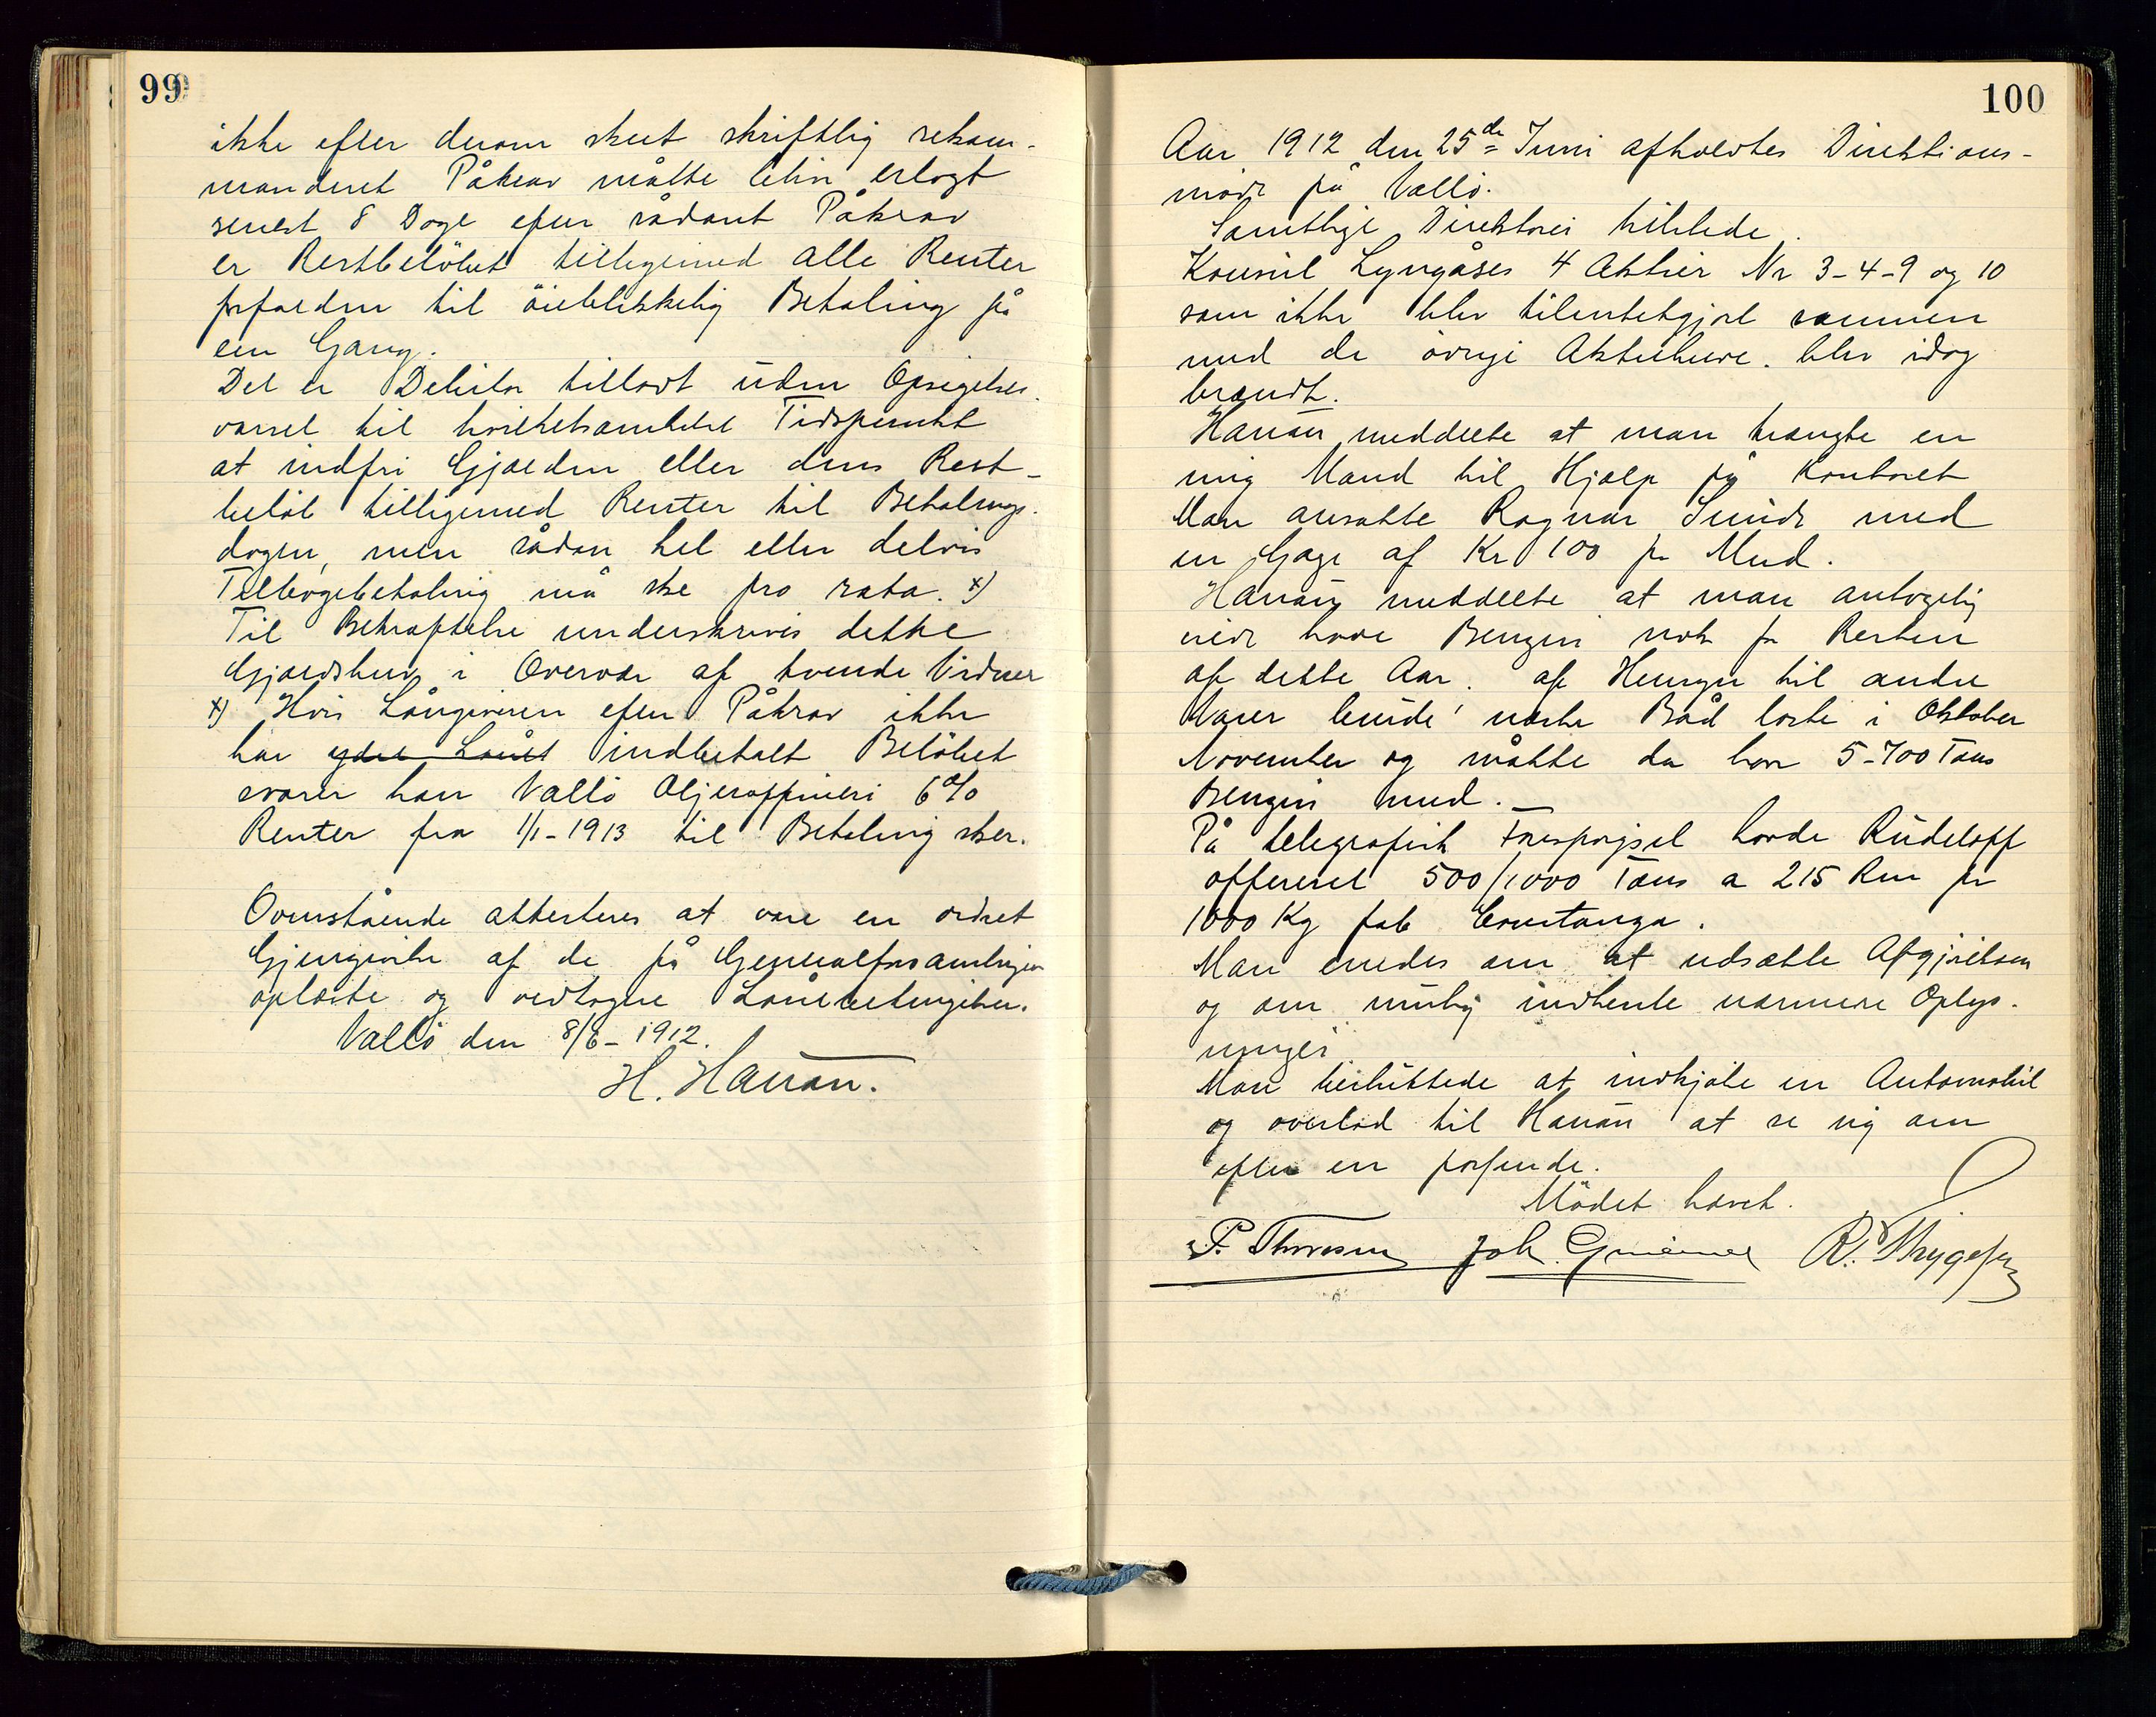 99
ikke efter derom skeet skriftlig rekom-
manderet Påkrav måtte blive erlagt
senest 8 Dage efter sådant Påkrav
er Restbelöbet tilligemed alle Renter
forfalden til öieblikkelig Betaling på
een Gang.
Det er Debitor tilladt uden Opsigelses-
varsel til hvilketsomhelst Tidspunkt
at indfri Gjælden eller dens Rest-
belöb tilligemed Renter til Betalings-
dagen, men sådan hel eller delvis
Tilbagebetaling må ske pro rata. x)
Til Bekræftelse underskrives dette
Gjældsbrev i Overvær af tvende Vidner
x) Hvis Långiveren efter Påkrav ikke
har ydet Lånet indbetalt Belöbet
svarer han Vallö Oljeraffineri 6%
Renter fra 1/1-1913 til Betaling sker.
Ovenstående attesteres at være en ordret
Gjengivelse af de på Generalforsamlingen
oplæste og vedtagne Lånebetingelser.
Vallö den 8/6-1912.
H. Hanan.
100
Aar 1912 den 25de Juni afholdtes Direktions-
möde på Vallö.
Samtlige Direktörer tilstede.
Konsul Lyngåses 4 Aktier Nr 3-4-9 og 10
som ikke blev tilintetgjort sammen
med de övrige Aktiebreve. blev idag
brændt.
Hanan meddelte at man trængte en
ung Mand til Hjælp på Kontoret
Man ansatte Ragnar Sunde med
en Gage af Kr 100 pr Mnd.
Hanan meddelte at man antagelig
vilde have Benzin nok for Resten
af dette Aar. af Hensyn til andre
Varer burde næste Båd laste i Oktober
November og måtte da have 5-700 Tons
Benzin med.
På telegrafisk Forespørgsel havde Rudeloff
offereret 500/1000 Tons a 215 Rm pr
1000 Kg fob Constanza.
Man enedes om at udsætte Afgjörelsen
og om mulig indhente nærmere Oplys-
ninger
Man besluttede at indkjöbe en Automobil
og overlod til Hanan at se sig om
efter en passende.
Mödet hævet.
P. Thoresen Joh. R. Thrygesen